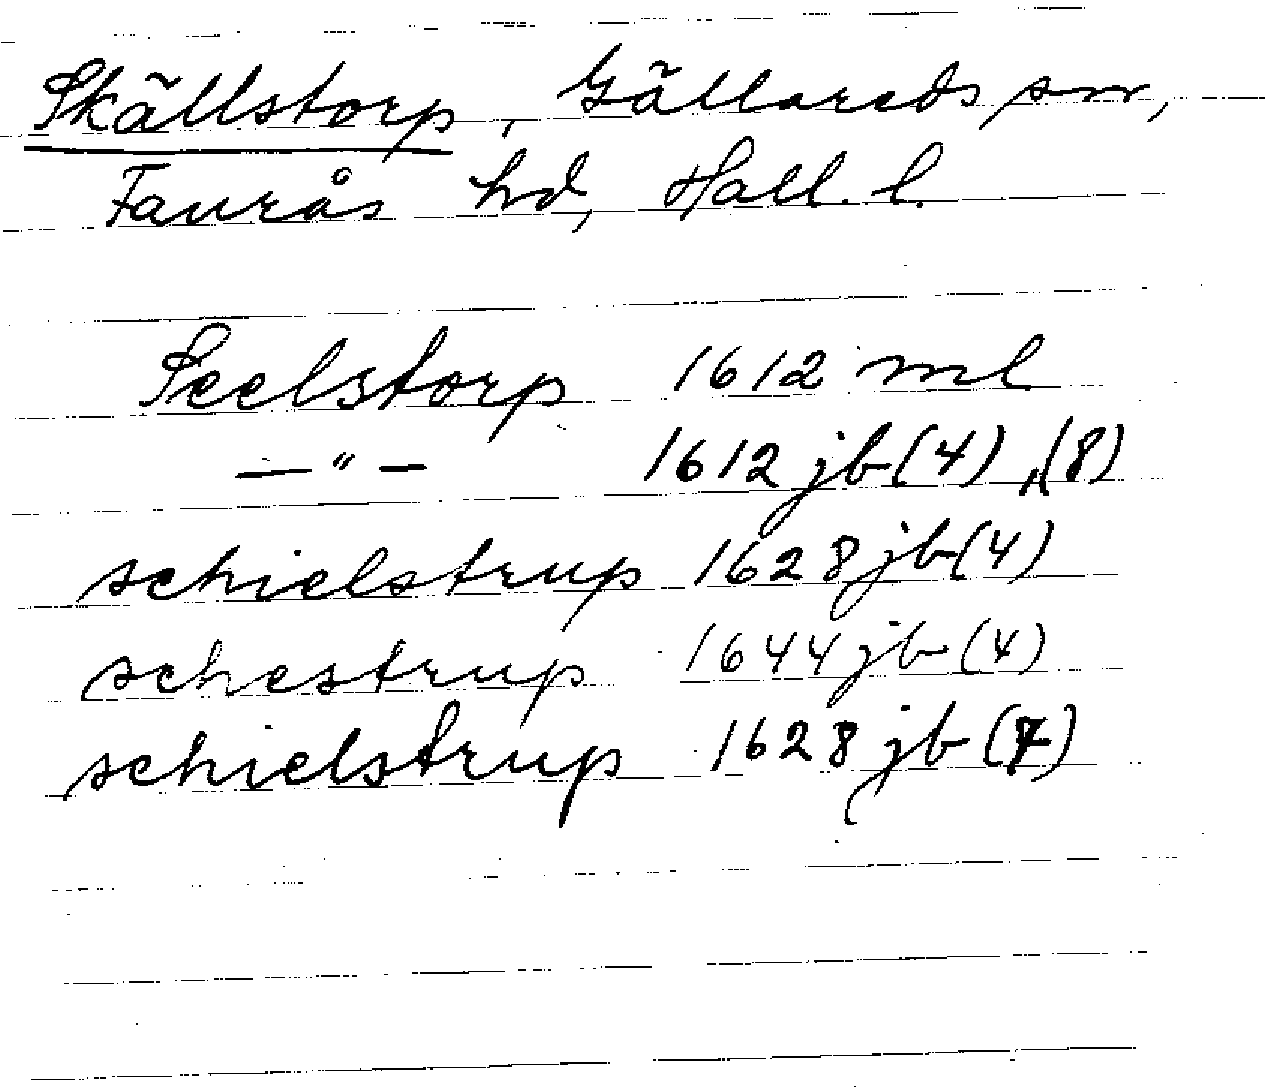 Skällstorp, Gällareds sn,
Faurås hd, Hall. l.
Seelstorp 1612 ml
— " — 1612 jb (4), (8)
schielstrup 1628 jb (4)
schestrup 1644 jb (4)
schielstrup 1628 jb (7)